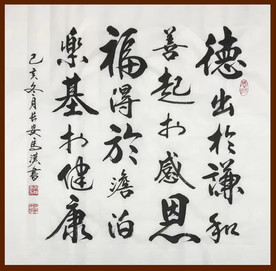 德出於謙和
善起於感恩
福得於澹泊
樂基於健康
己亥冬月長安馬漢書